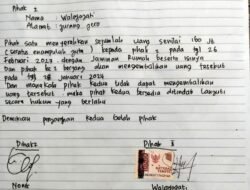 Pihak 2
Nama : Walagogah
Alamat : gurang gero
Pihak satu menyerahkan sejumlah uang senilai 160 jt
( seratus enampuluh juta ) kepada pihak 2 pada tgl 26
Februari 2023 dengan Jaminan Rumah beserta isinya
Dan pihak ke 2 berjanji akan mengembalikan uang tersebut
pada tgl 28 Januari 2024
Dan manakala pihak kedua tidak dapat mengembalikan
uang tersebut maka pihak kedua bersedia ditindak lanjuti
secara hukum yang berlaku
Demikian perjanjian kedua belah pihak
Pihak
Pihak II